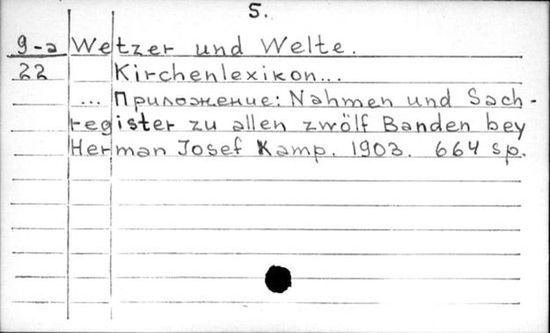 5.
9-a Wetzer und Welte.
22 Kirchenlexikon...
... Приложение: Nahmen und Sach-
register zu allen zwölf Banden bey
Herman Josef Kamp. 1903. 664 sp.